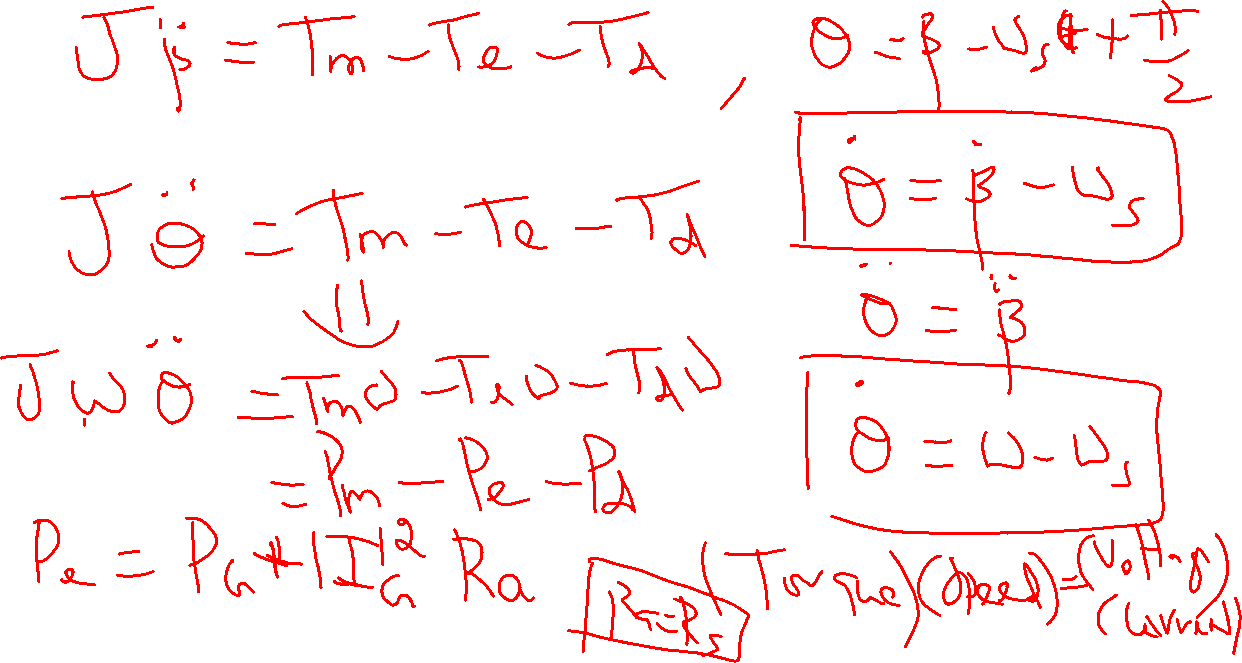 Jβ̈ = Tm − Te − Td , θ = β − ωst + π/2
θ̇ = β̇ − ωs
Jθ̈ = Tm − Te − Td
θ̈ = β̈
Jωθ̈ = Tmω − Teω − Tdω
θ̇ = ω − ωs
= Pm − Pe − Pd
Pe = PG + |IG|² Ra
Ra=Rs
(Torque)(speed)=(Voltag)
(Current)